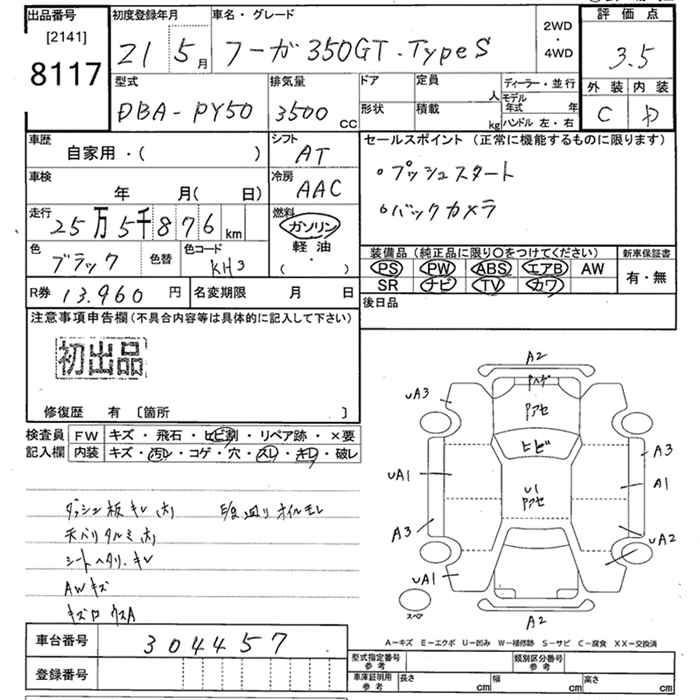 出品番号 初度登録年月 車名・グレード 2WD・4WD 評価点
[2141]
8117 21 5月 フーガ 350GT・TypeS 3.5
型式 排気量 ドア 定員 人 ディーラー・並行 外装 内装
DBA-PY50 3500cc 形状 積載 kg モデル年式 年 C D
ハンドル 左・右
車歴 シフト セールスポイント (正常に機能するものに限ります)
自家用・( ) AT
車検 冷房 ・プッシュスタート
年 月( 日) AAC ・バックカメラ
走行 燃料
25万5千876km ガソリン
軽油
・( )
色 色替 色コード 装備品 (純正品に限り○をつけてください) 新車保証書
ブラック KH3 PS PW ABS エアB AW 有・無
SR ナビ TV カワ
R券 13,960円 名変期限 月 日 後日品
注意事項申告欄 (不具合内容等は具体的に記入して下さい)
初出品
修復歴 有 〔箇所 〕
検査員 FW キズ・飛石・ヒビ割・リペア跡・×要
記入欄 内装 キズ・汚レ・コゲ・穴・スレ・キレ・破レ
ダッシュ板キレ
天バリタルミ
シートヘタリ・キレ
AWキズ
A2
uA3
アアセ
ヒビ
A3
uA1
U1
アアセ
A1
A3
uA2
uA1
スペア
A2
A-キズ E-エクボ U-凹み W-補修跡 S-サビ C-腐食 XX-交換済
車台番号 304457
登録番号
型式指定番号 参考 類別区分番号 参考
車庫証明用 参考 長さ cm 幅 cm 高さ cm